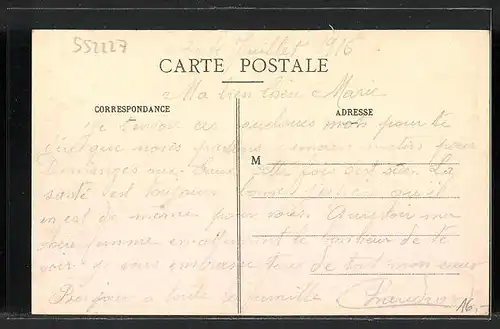 552227
Juillet 1916
CARTE POSTALE
Ma bien chère Marie
CORRESPONDANCE
ADRESSE
Je t'envoie ces quelques mots pour te
que nous demain matin pour
M
cette fois
La
santé est toujours bonne j'espère qu'il
en est de même pour vous. Au revoir ma
chère femme en attendant le bonheur de te
voir je vous embrasse tous de tout mon cœur
Bonjour a toute la famille
16,-